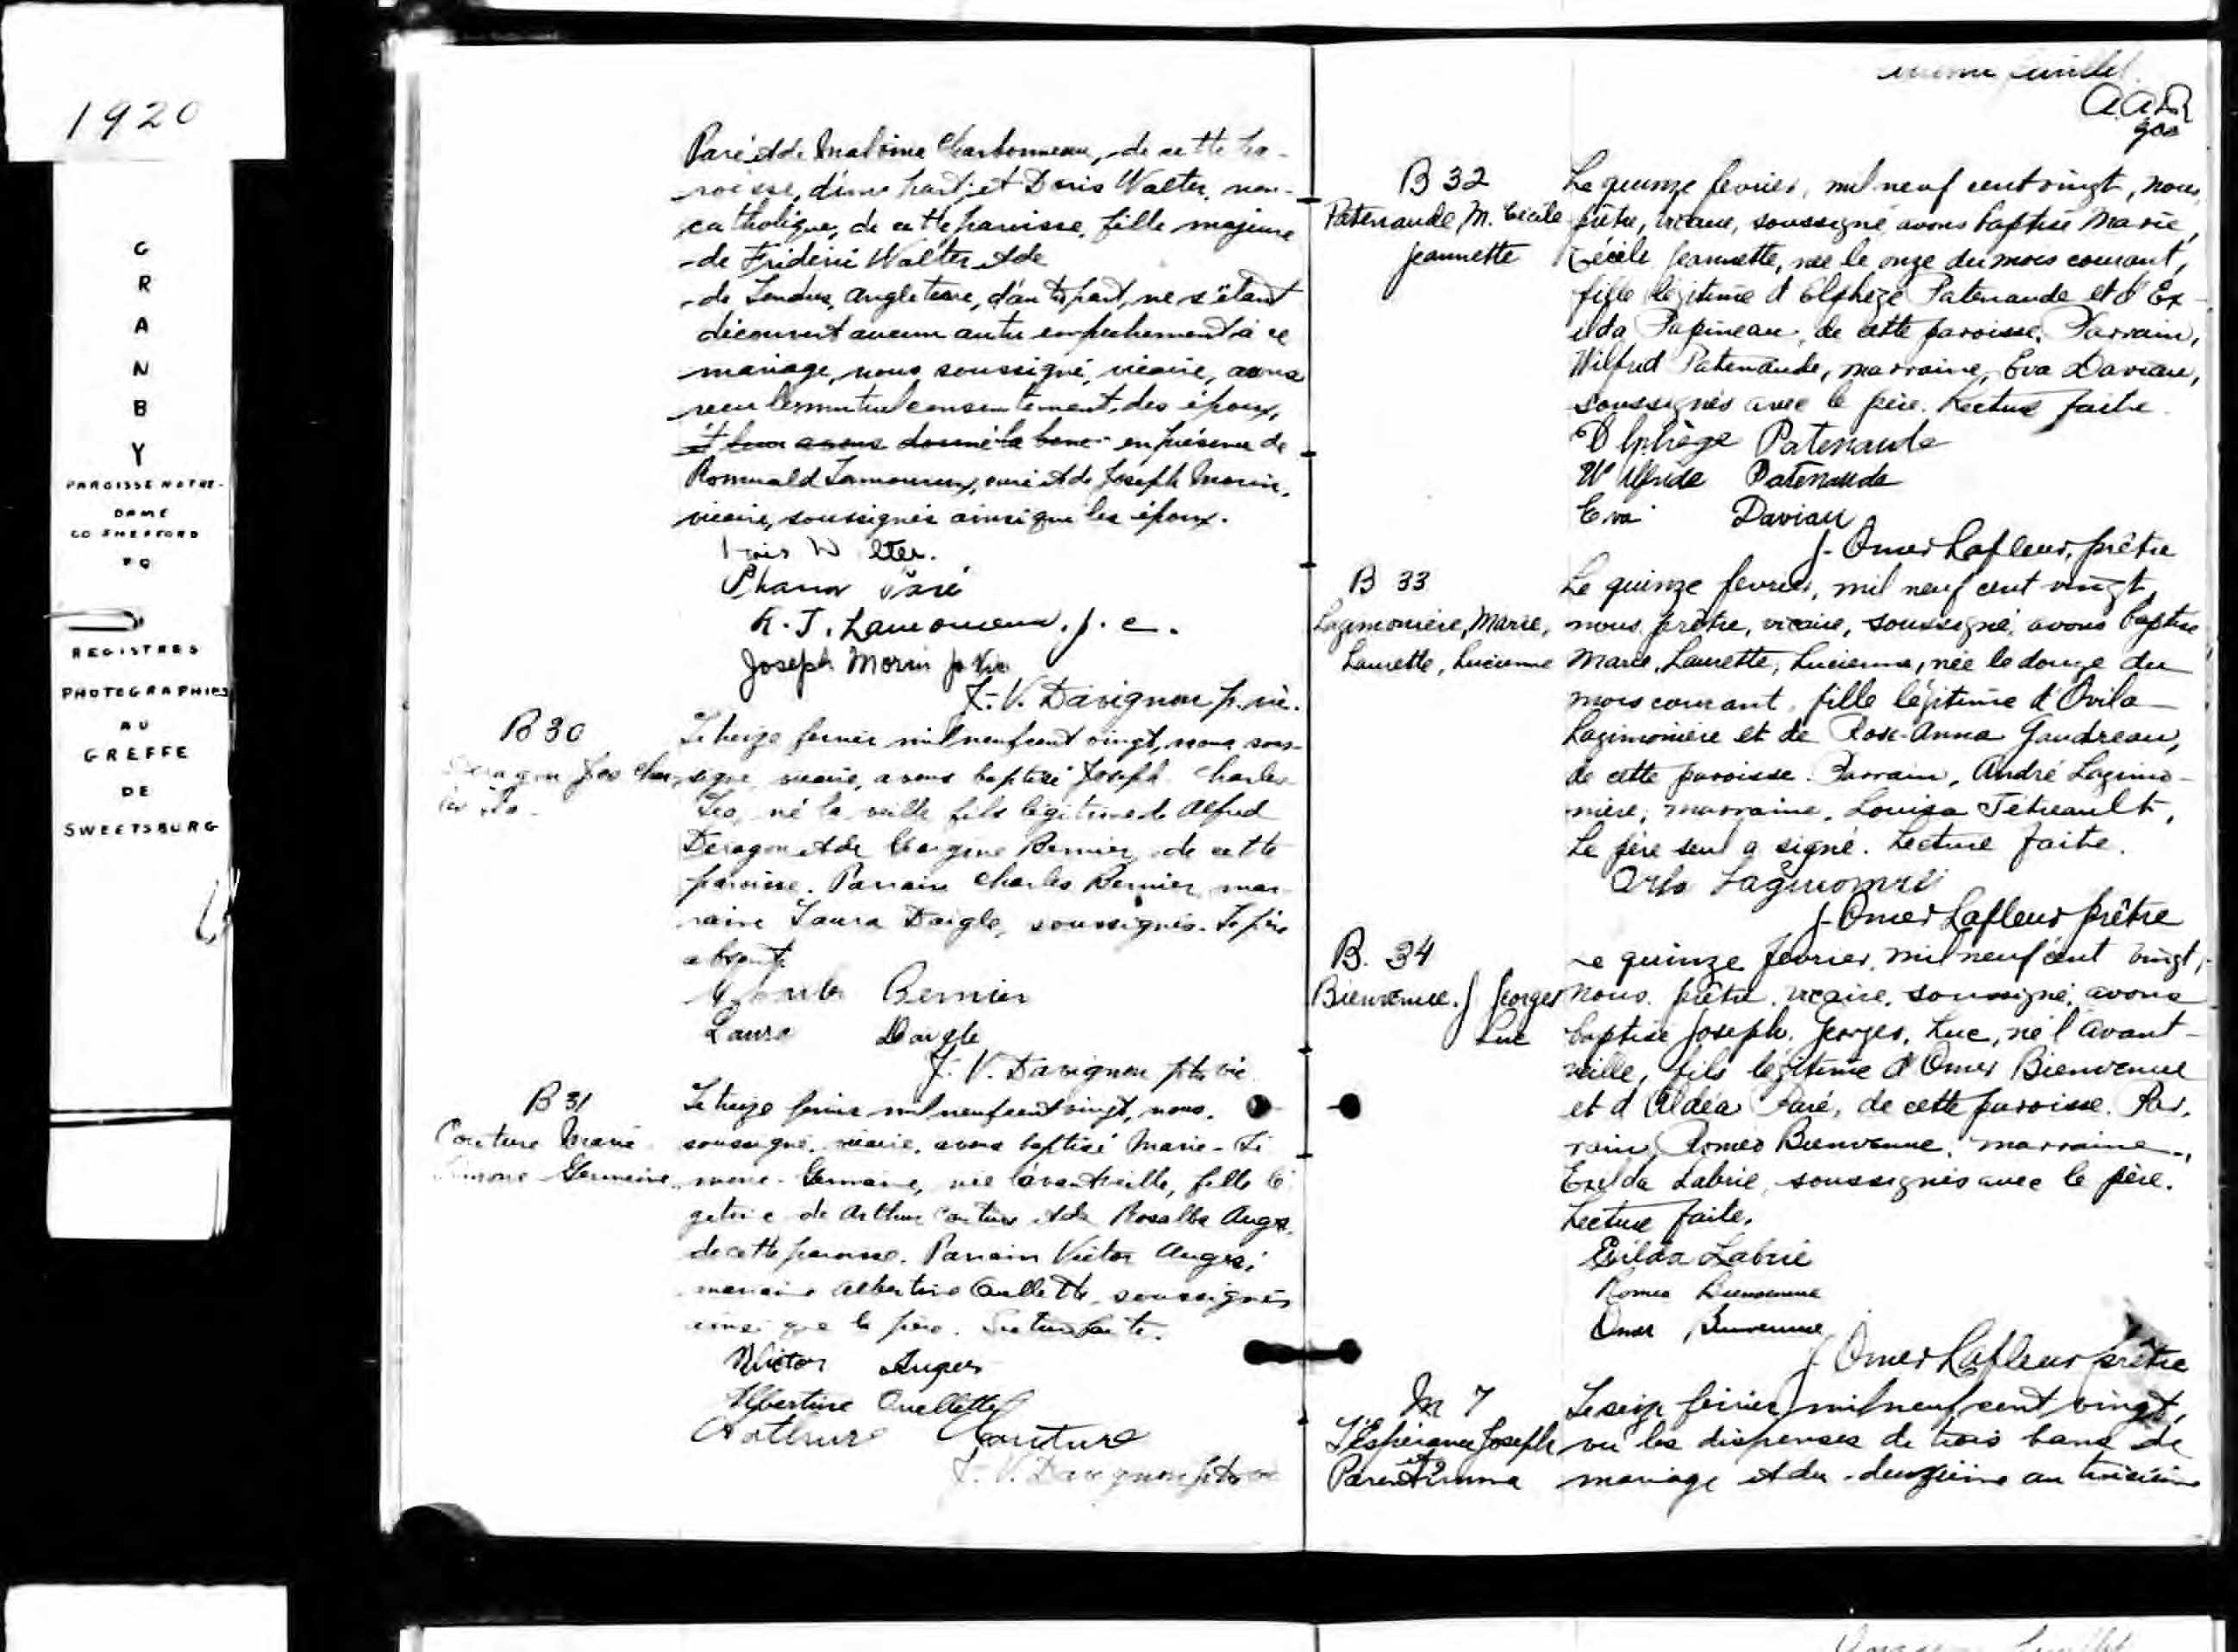 1920
GRANBY
PAROISSE NOTRE-
DAME
CO SHEFFORD
PQ
REGISTRES
PHOTOGRAPHIES
AU
GREFFE
DE
SWEETSBURG
Paré et de Malvina Charbonneau, de cette pa-
roisse, d'une part; et Doris Walter, non-
catholique, de cette paroisse, fille majeure
de Frédéric Walter et de
de Londres, Angleterre, d'autre part, ne s'étant
découvert aucun autre empêchement à ce
mariage, nous soussigné, vicaire, avons
reçu le mutuel consentement des époux,
et leur avons donné la béné- en présence de
Romuald Lamoureux, curé et de Joseph Morin,
vicaire, soussignés ainsi que les époux.
Paré
Joseph Morin ptre vic
J.-V. Davignon p. vic.
B 30
Deragon Jos Char
les Léo
Le treize février mil neuf cent vingt, nous sous-
signé, vicaire, avons baptisé Joseph Charles
Léo, né la veille fils légitime de Alfred
Deragon et de Georgine Bernier de cette
paroisse. Parrain Charles Bernier, mar-
raine Laura Daigle, soussignés. Le père
absent.
Charles Bernier
Laura Daigle
J. V. Davignon ptre vic
B 31
Couture Marie
Simone Germaine
Le treize février mil neuf cent vingt, nous,
soussigné, vicaire, avons baptisé Marie-Si
mone-Germaine, née l'avant veille, fille lé
gitime de Arthur Couture et de Rosalba Auger,
de cette paroisse. Parrain Victor Auger;
marraine Albertine Ouellette, soussignés
ainsi que le père. Lecture faite.
Victor Auger
Albertine Ouellette
Arthur Couture
J. V. Davignon ptre vic
feuillet
B 32
Patenaude, M. Cécile
Jeannette
Le quinze fevrier, mil neuf cent vingt, nous,
prêtre, vicaire, soussigné, avons baptisé Marie,
Cécile Jeannette, née le onze du mois courant,
fille légitime d'Elphège Patenaude et d'Ex-
ilda Papineau, de cette paroisse. Parrain,
Wilfrid Patenaude, marraine, Eva Daviau,
soussignés avec le père. Lecture faite.
Elphège Patenaude
Wilfride Patenaude
Eva Daviau
J-Omer Lafleur, prêtre
B 33
Lagimonière, Marie,
Laurette, Lucienne
Le quinze fevrier, mil neuf cent vingt,
nous, prêtre, vicaire, soussigné, avons baptisé
Marie, Laurette, Lucienne, née le douze du
mois courant, fille légitime d'Ovila
Lagimonière et de Rose-Anna Gaudreau,
de cette paroisse. Parrain, André Lagimo-
nière; marraine, Louisa Tétreault,
Le père seul a signé. Lecture faite.
J-Omer Lafleur prêtre
B. 34
Bienvenue. J Georges
Luc
Le quinze fevrier, mil neuf cent vingt,
nous, prêtre, vicaire, soussigné, avons
baptisé Joseph, Georges, Luc, né l'avant-
veille, fils légitime d'Omer Bienvenue
et d'Aldéa Paré, de cette paroisse. Par-
rain, Roméo Bienvenue, marraine,
Exilda Labrie, soussignés avec le père.
Lecture faite.
Exilda Labrie
Romeo Bienvenue
Omer Bienvenue
J. Omer Lafleur prêtre
M 7
L'Espérance Joseph
et
Parent Emma
Le seize février mil neuf cent vingt,
vu les dispenses de trois bans de
mariage et du deuxième au troisième